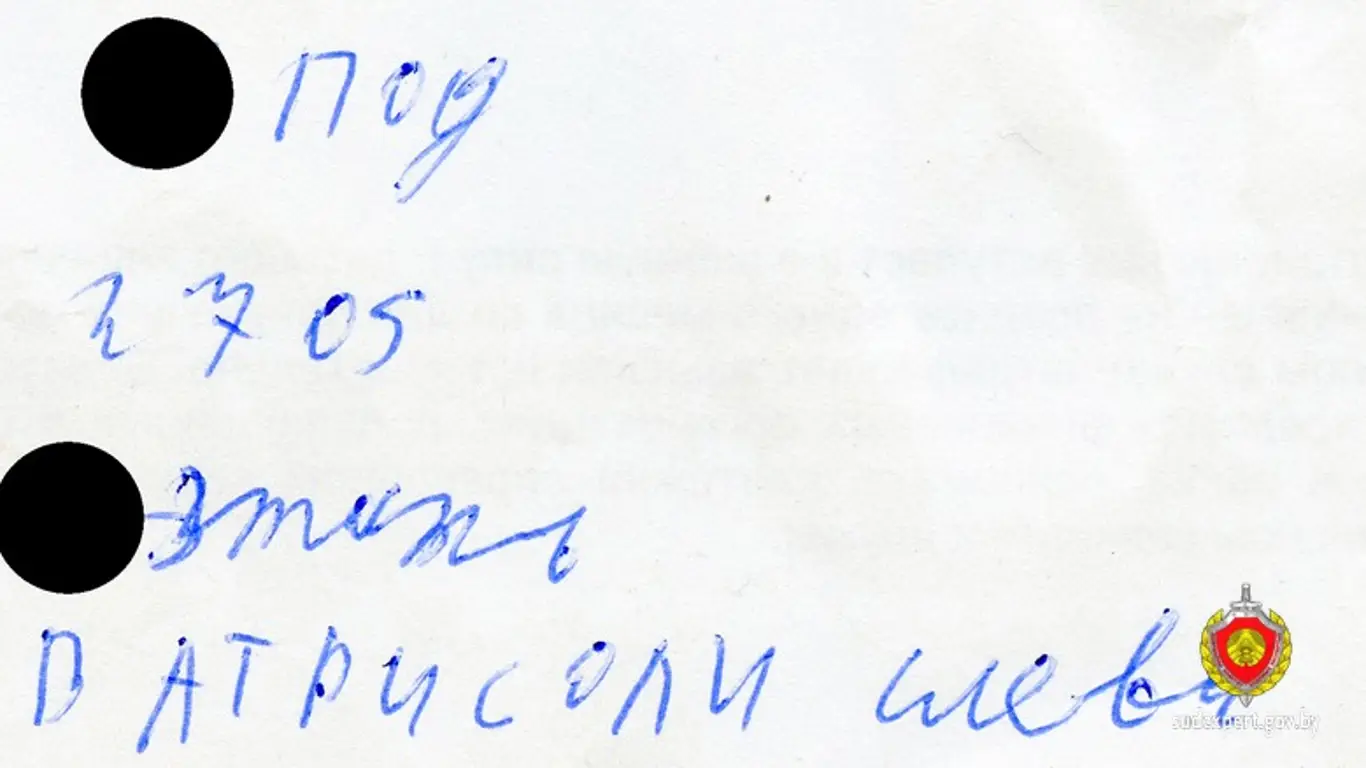 под
2705
этаж
ПАТРИСОЛИ слева
sudexpert.gov.by